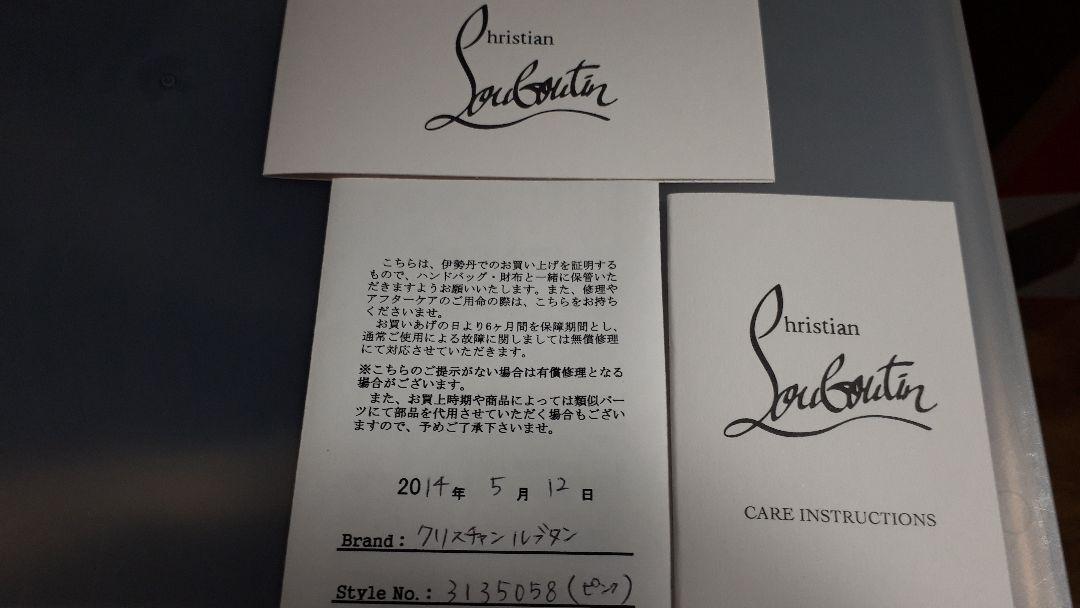 Christian
Louboutin
こちらは、伊勢丹でのお買い上げを証明する
もので、ハンドバッグ・財布と一緒に保管いた
だきますようお願いいたします。また、修理や
アフターケアのご用命の際は、こちらをお持ち
くださいませ。
お買いあげの日より6ヶ月間を保障期間とし、
通常ご使用による故障に関しましては無償修理
にて対応させていただきます。
※こちらのご提示がない場合は有償修理となる
場合がございます。
また、お買上時期や商品によっては類似パー
ツにて部品を代用させていただく場合もござい
ますので、予めご了承下さいませ。
2014年 5月 12日
Brand: クリスチャンルブタン
Style No.: 3135058(ピンク)
Christian
Louboutin
CARE INSTRUCTIONS